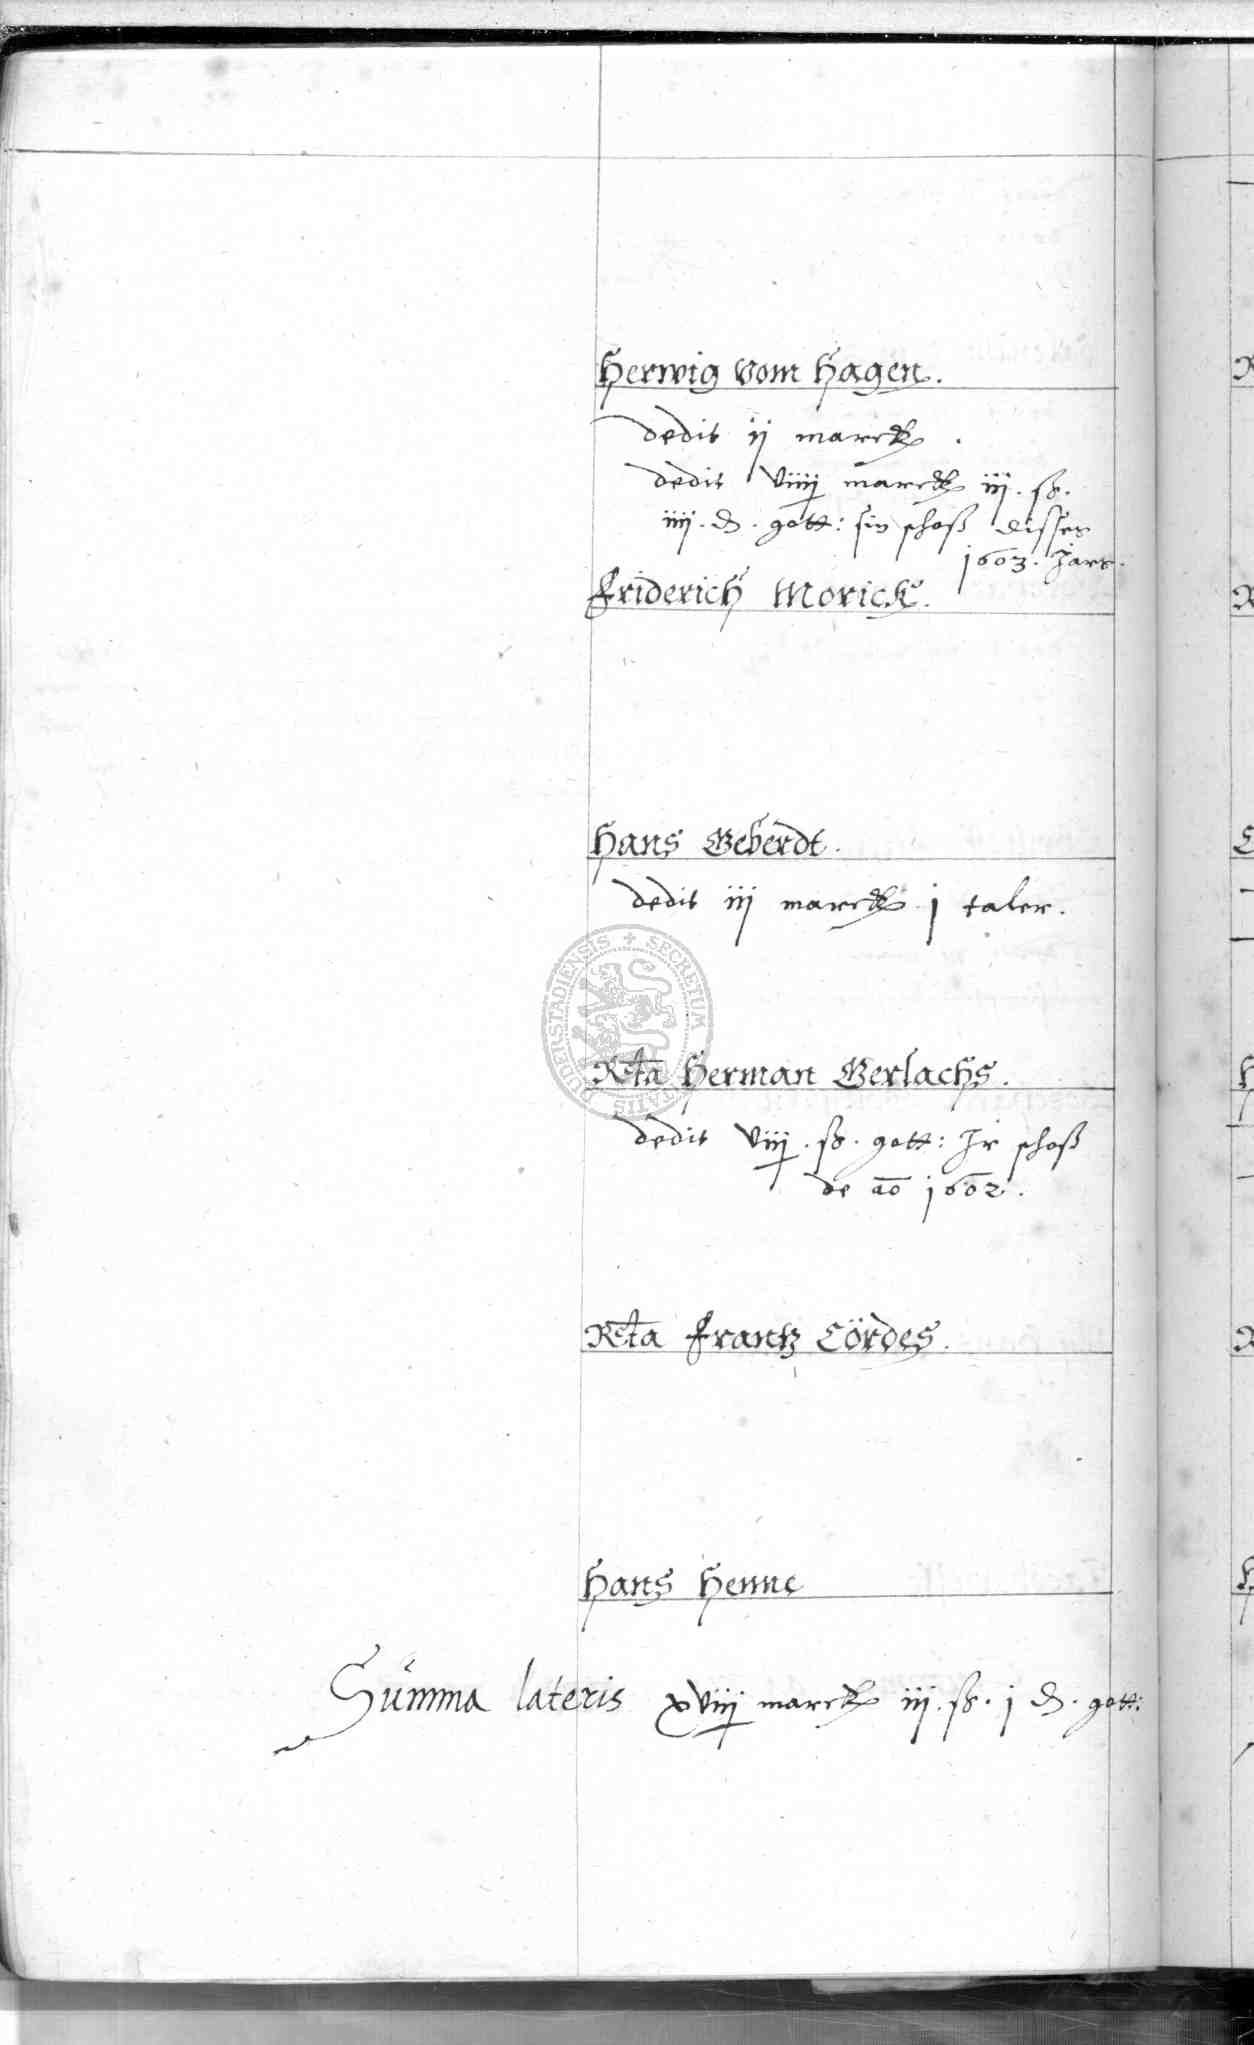 Herwig vom Hagen.
dedit ij marck.
dedit viiij marck iij. ß.
iiij. d. gott: sin schoß disses
1603. Jars.
Friderich Morick.
Hans Geberdt.
dedit iij marck j taler.
Rcta Herman Gerlachs.
dedit viij. ß. gott: Ir schoß
de ao 1602.
Rcta Frantz Cördes.
Hans Henne
Summa lateris xviij marck iij. ß. j d. gott:
SECRETUM
DUDERSTADIENSIS